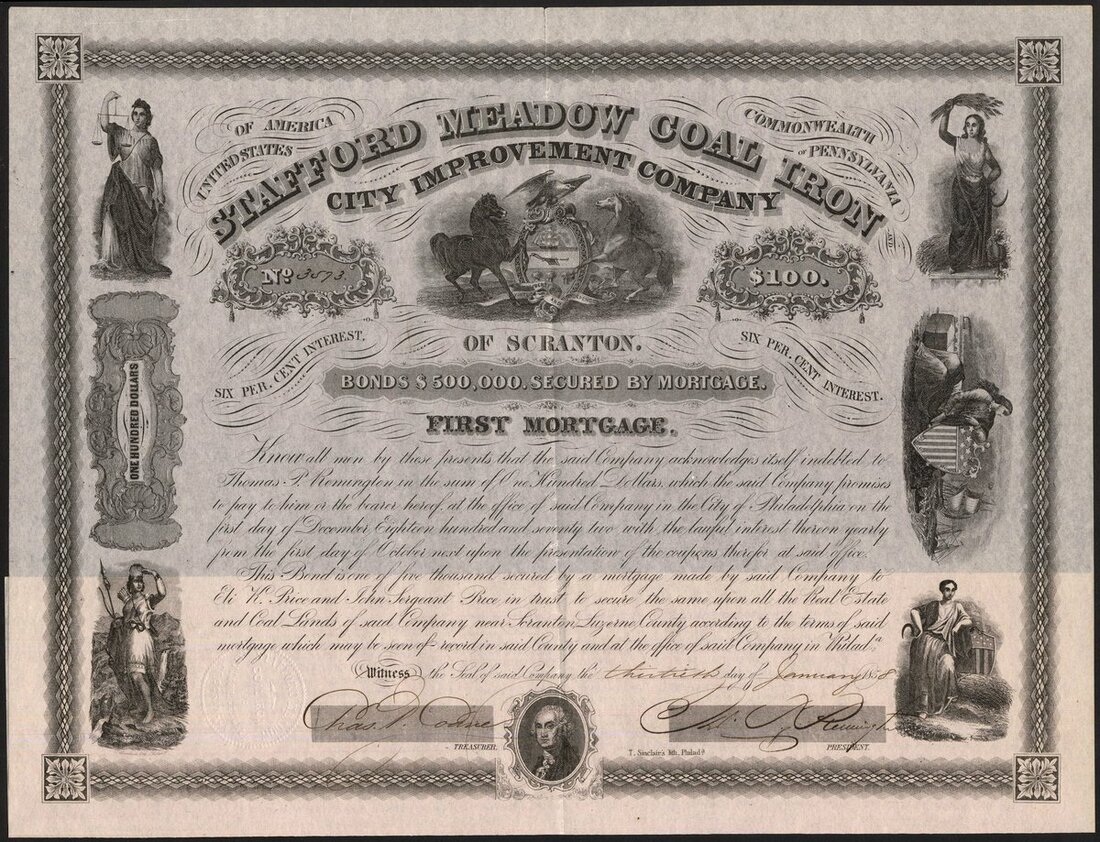 UNITED STATES OF AMERICA
COMMONWEALTH OF PENNSYLVANIA
STAFFORD MEADOW COAL IRON AND
CITY IMPROVEMENT COMPANY
No 3573
$100.
OF SCRANTON.
SIX PER. CENT INTEREST.
SIX PER. CENT INTEREST.
BONDS $500,000. SECURED BY MORTGAGE.
FIRST MORTGAGE.
ONE HUNDRED DOLLARS
Know all men by these presents that the said Company acknowledges itself indebted to
Thomas P. Remington in the sum of One Hundred Dollars, which the said Company promises
to pay to him or the bearer hereof, at the office of said Company in the City of Philadelphia on the
first day of December Eighteen hundred and seventy two with the lawful interest thereon yearly
from the first day of October next upon the presentation of the coupons therefor at said office.
This Bond is one of five thousand secured by a mortgage made by said Company to
Eli K. Price and John Sergeant Price in trust to secure the same upon all the Real Estate
and Coal Lands of said Company near Scranton Luzerne County according to the terms of said
mortgage which may be seen of record in said County and at the office of said Company in Philada
Witness the Seal of said Company the thirtieth day of January 1858
TREASURER.
T. Sinclair's lith, Philada
PRESIDENT.